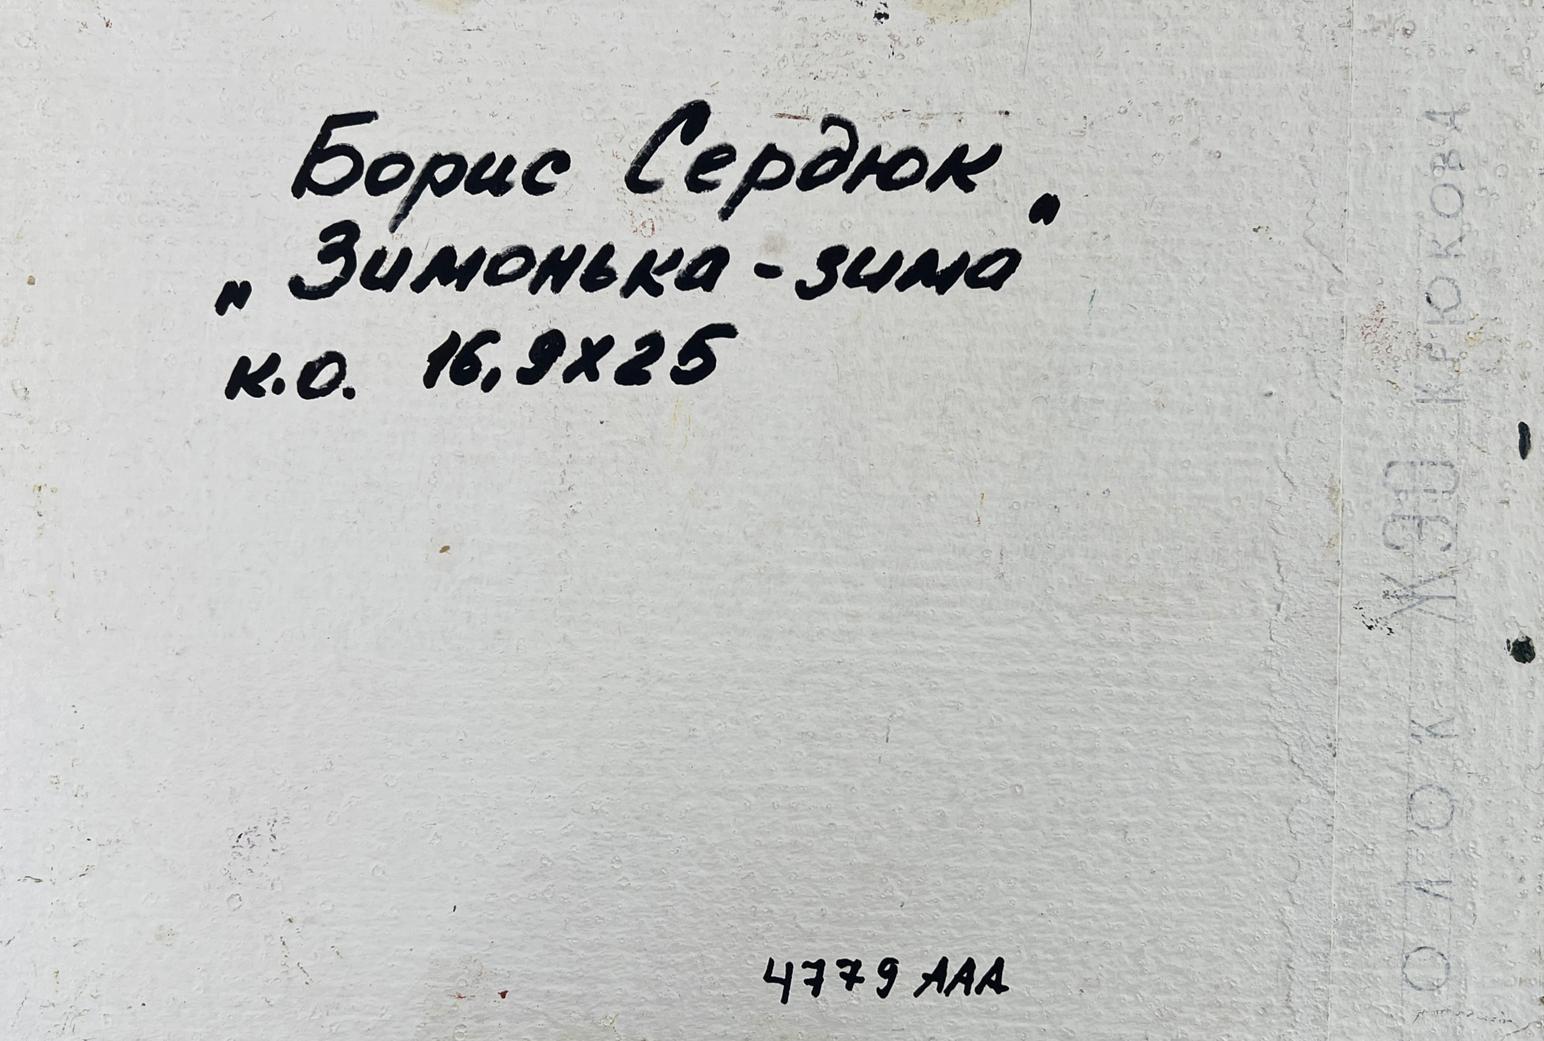 Борис Сердюк
„Зимонька-зима"
к.о. 16,9х25
4779 ААА
ЖЭО КРЮКОВА